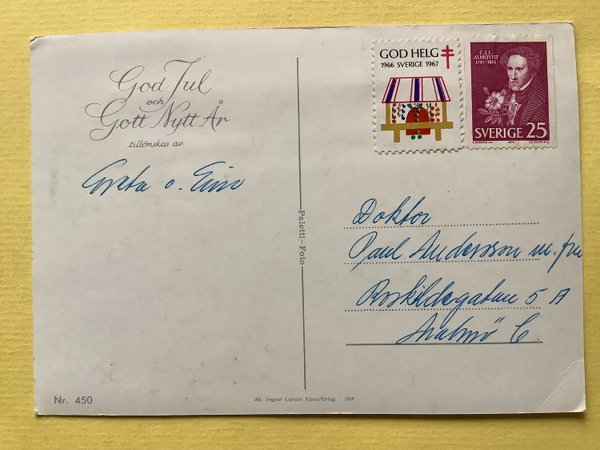 God Jul
och
Gott Nytt År
tillönskas av
Greta o. Eino
GOD HELG
1966 SVERIGE 1967
C.J.L.
ALMQVIST
1793-1866
SVERIGE 25
Doktor
Paul Andersson m. fru
Roskildegatan 5 A
Malmö C.
Paletti-Foto
Nr. 450
Ab. Ingvar Larson Konstförlag IMP